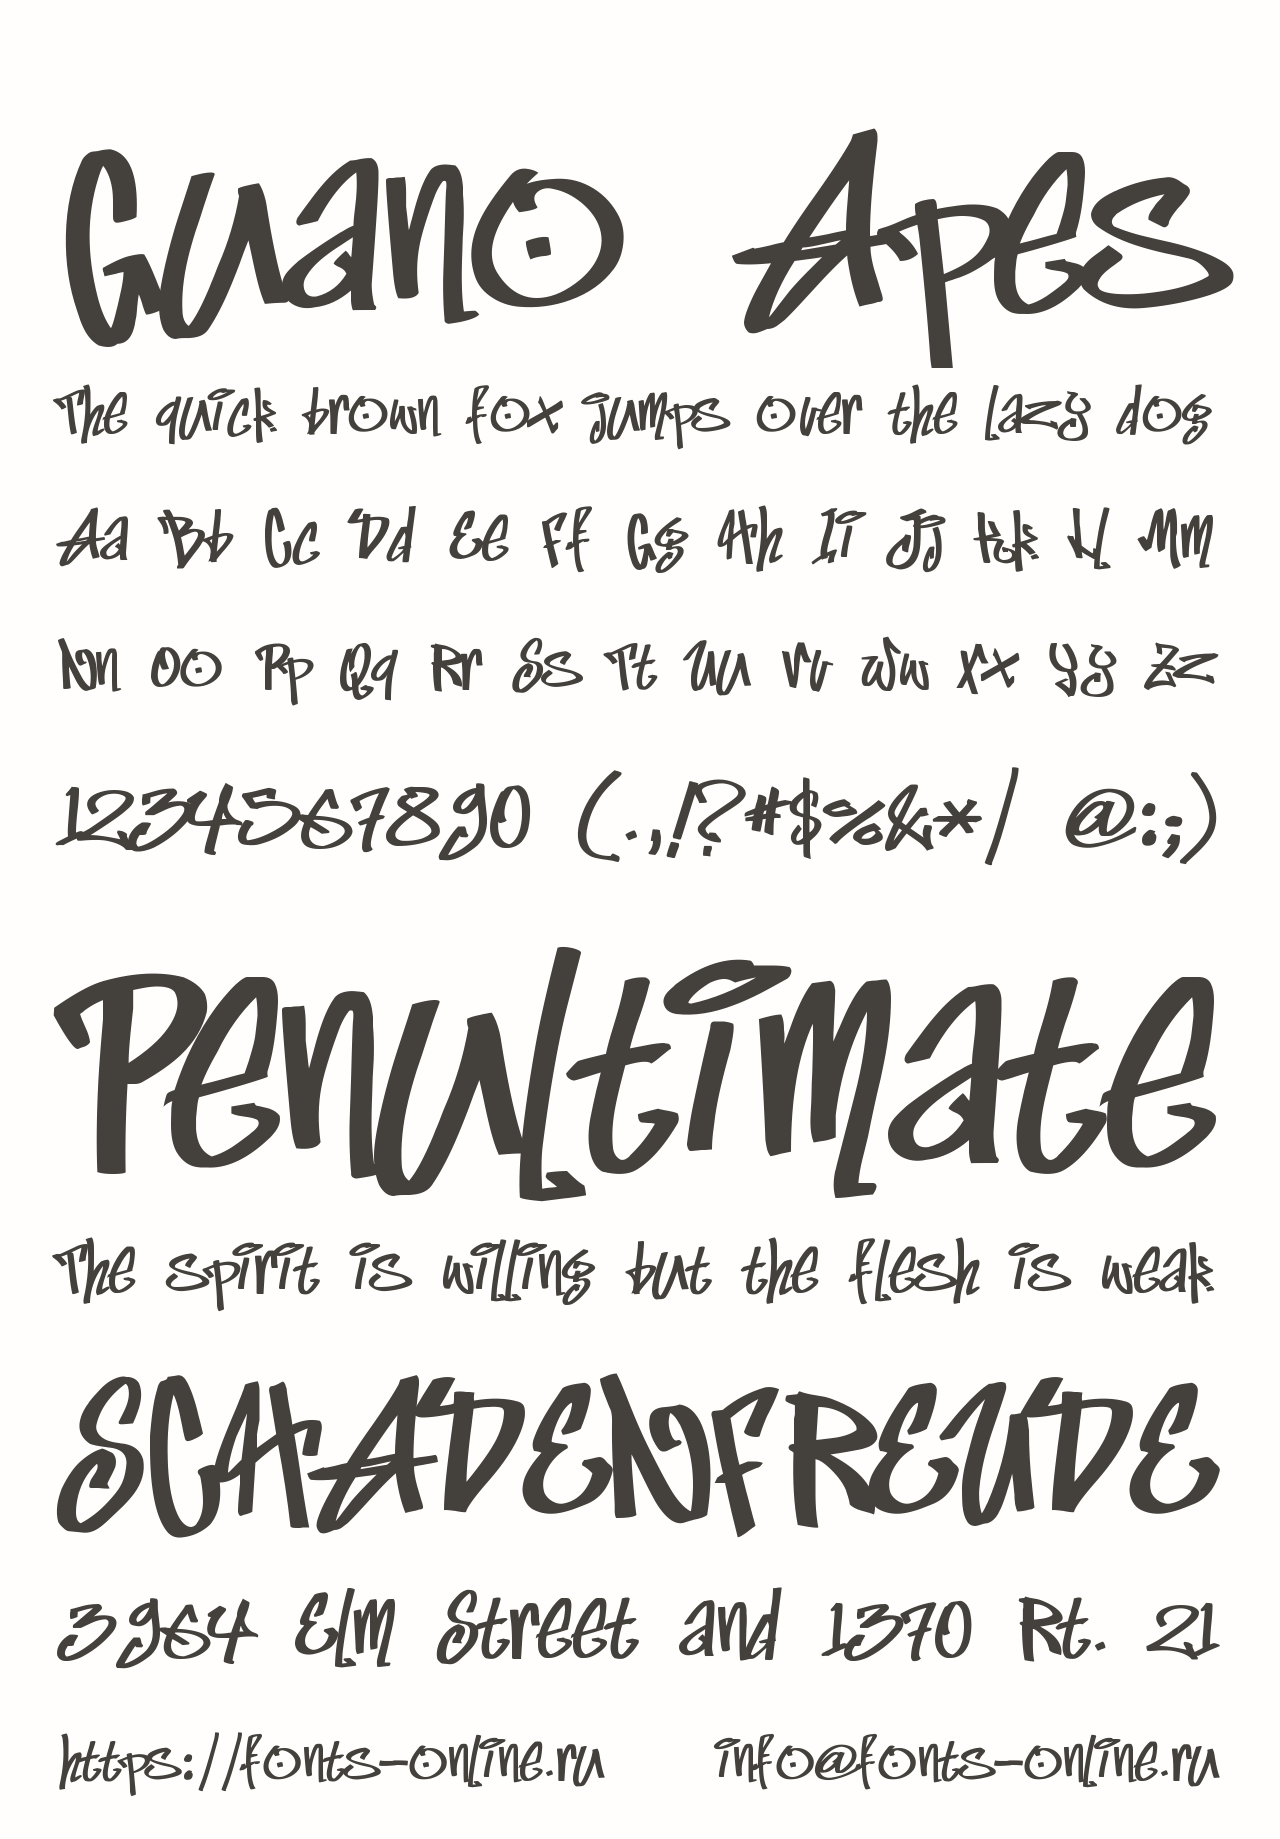 Guano Apes
The quick brown fox jumps over the lazy dog
Aa Bb Cc Dd Ee Ff Gg Hh Ii Jj Kk Ll Mm
Nn Oo Pp Qq Rr Ss Tt Uu Vv Ww Xx Yy Zz
1234567890 (.,!?#$%&*/ @:;)
Penultimate
The spirit is willing but the flesh is weak
SCHADENFREUDE
3964 Elm Street and 1370 Rt. 21
https://fonts-online.ru info@fonts-online.ru